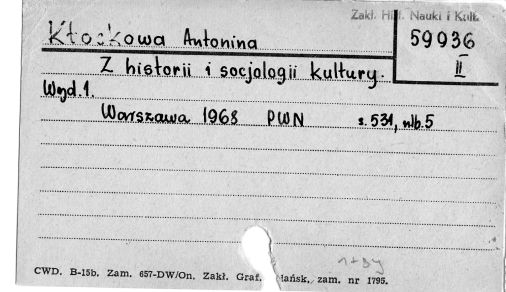 Zakł. Hist. Nauki i Kult.
Kłoskowa Antonina
59936
II
Z historii i socjologii kultury.
Wyd. 1.
Warszawa 1968 PWN s. 531, nlb. 5
CWD. B-15b. Zam. 657-DW/On. Zakł. Graf. Gdańsk, zam. nr 1795.